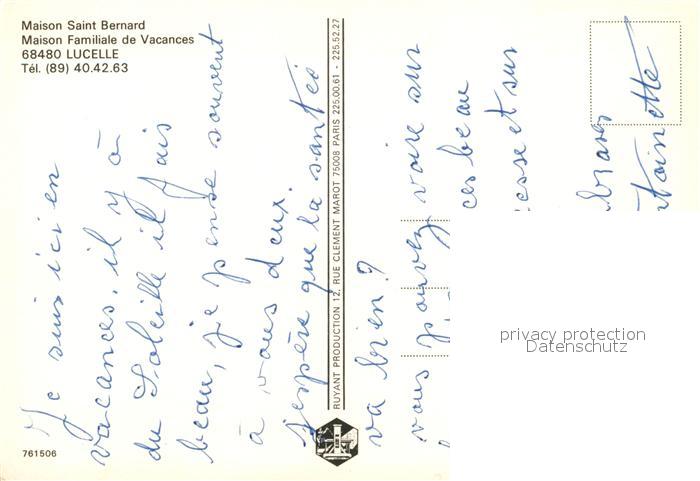 Maison Saint Bernard
Maison Familiale de Vacances
68480 LUCELLE
Tél. (89) 40.42.63
Je suis ici en
vacances. il y à
du Soleille il fais
beau, je pense souvent
à vous deux.
j'espère que la santée
va bien ?
vous pouvez voire sur
ces beau
esse et sur
RUYANT PRODUCTION 12, RUE CLEMENT MAROT 75008 PARIS 225.00.61 - 225.52.27
761506
privacy protection
Datenschutz